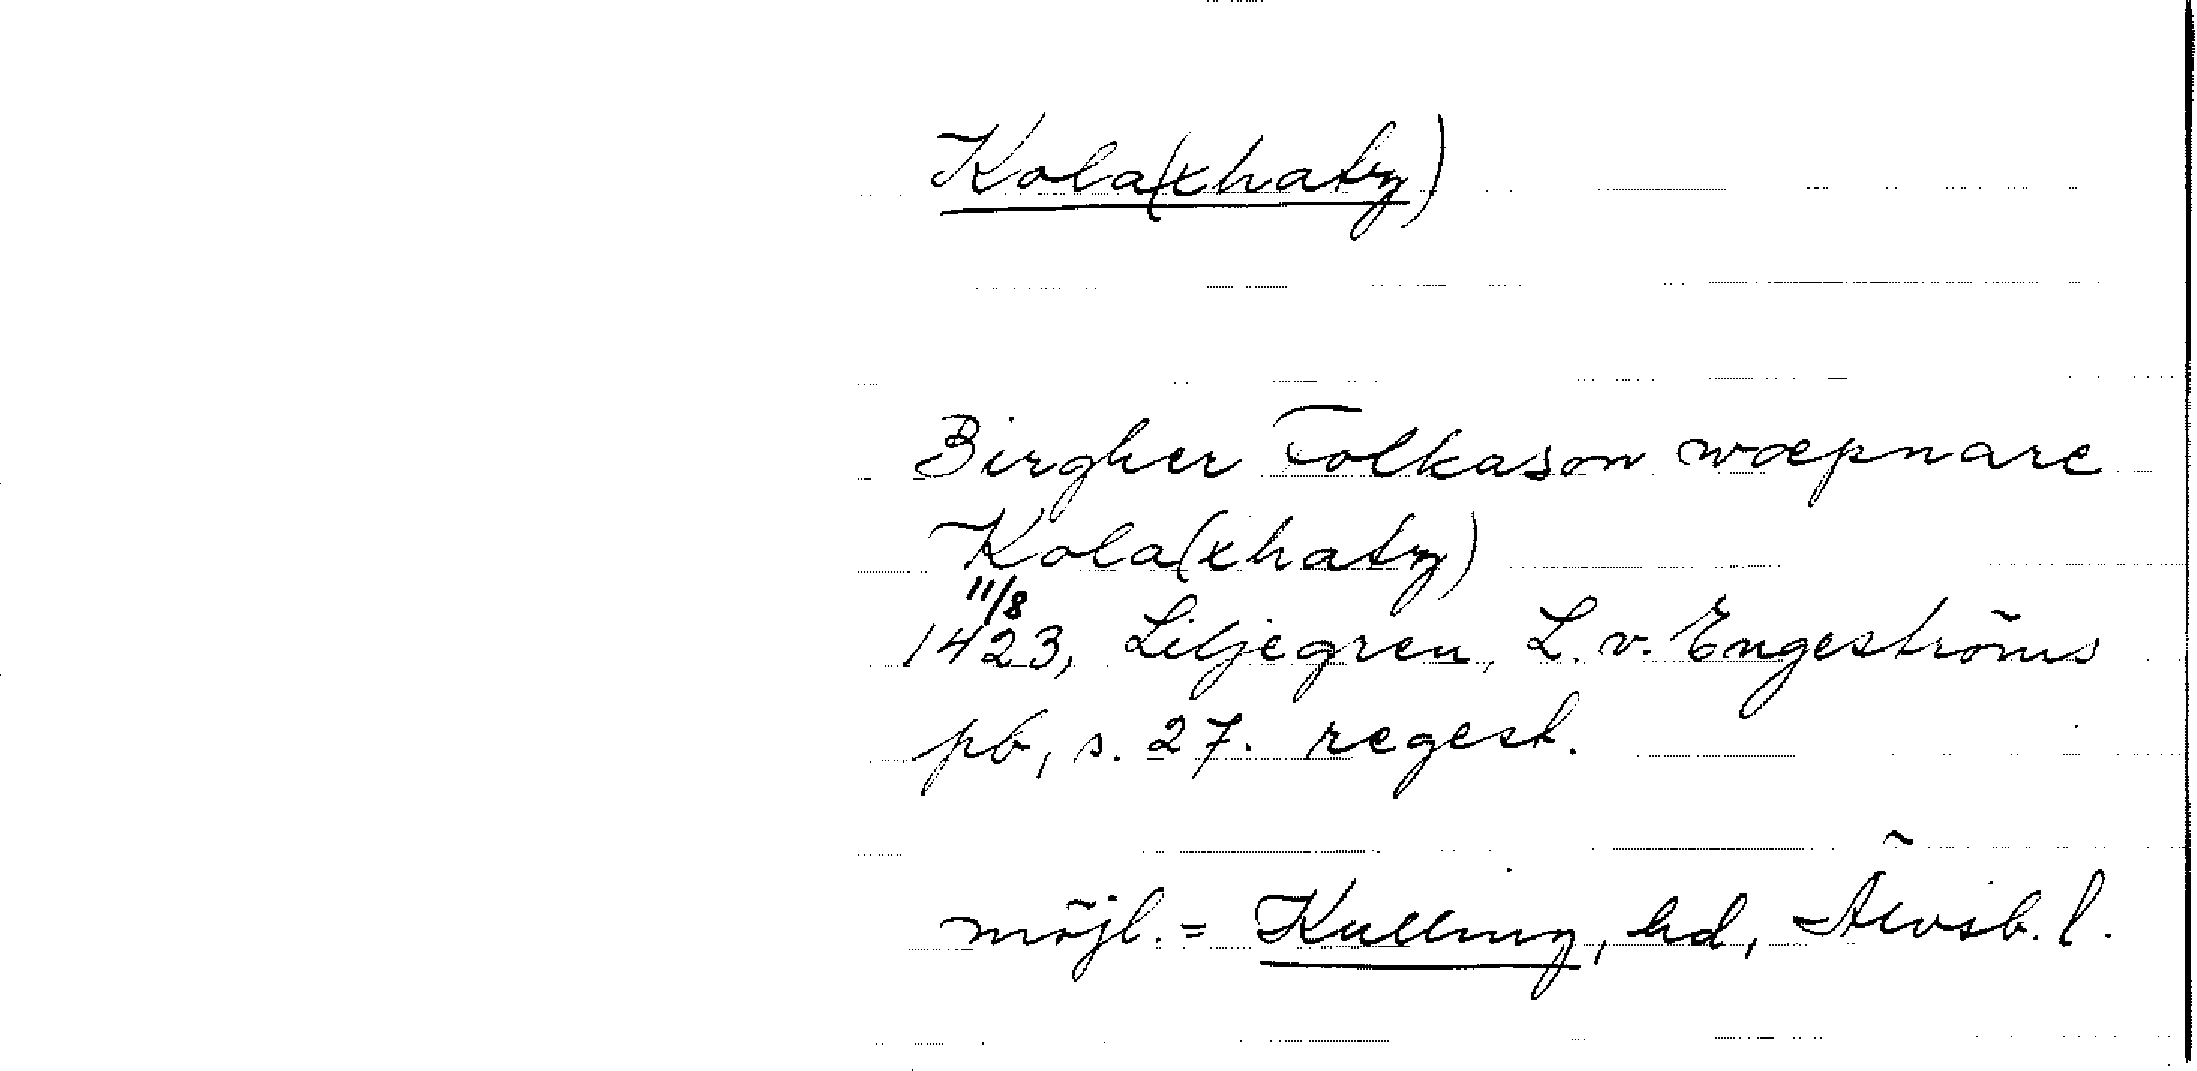 Kola(xhatz)
Birgher Folkason wæpnare
Kola(xhatz)
11/8
1423, Liljegren, L. v. Engeströms
pb, s. 27. regest.
möjl. = Kulling, hd, Älvsb. l.